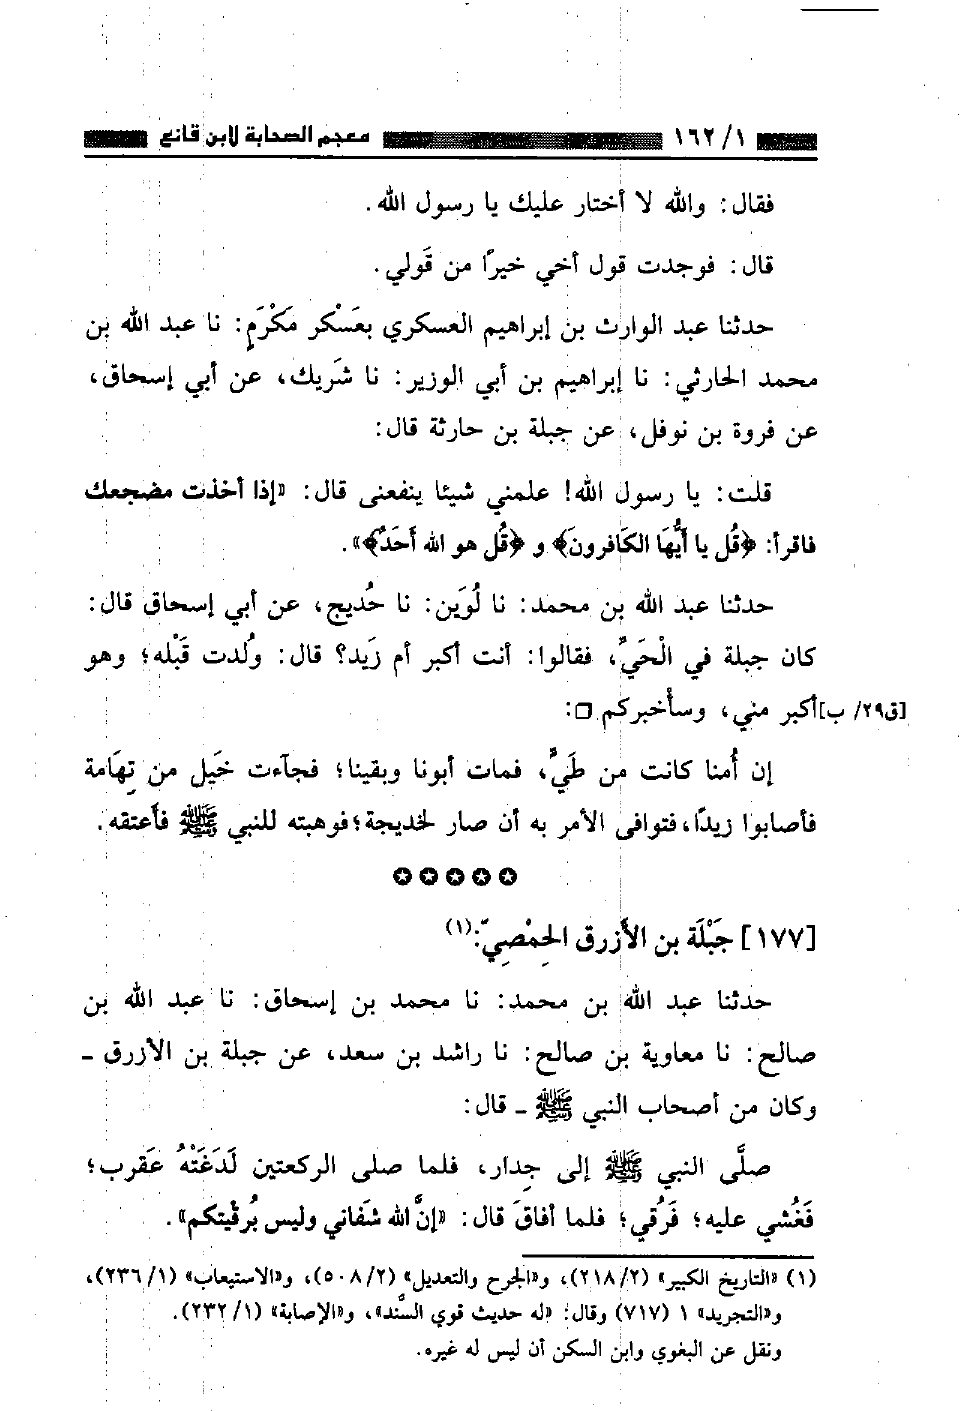 ١/ ١٦٢ معجم الصحابة لابن قانع
فقال: والله لا أختار عليك يا رسول الله.
قال: فوجدت قول أخي خيرًا من قَولي.
حدثنا عبد الوارث بن إبراهيم العسكري بعَسْكر مَكْرَمٍ: نا عبد الله بن
محمد الحارثي: نا إبراهيم بن أبي الوزير: نا شَريك، عن أبي إسحاق،
عن فروة بن نوفل، عن جبلة بن حارثة قال:
قلت: يا رسول الله! علمني شيئا ينفعنى قال: «إذا أخذت مضجعك
فاقرأ: ﴿قُل يا أَيُّهَا الكَافرونَ﴾ و ﴿قُل هو الله أَحَدٌ﴾».
حدثنا عبد الله بن محمد: نا لُوَين: نا حُديج، عن أبي إسحاق قال:
كان جبلة في الْحَيِّ، فقالوا: أنت أكبر أم زَيد؟ قال: وُلدت قَبْله؛ وهو
[ق٢٩/ ب] أكبر مني، وسأخبركم □:
إن أُمنا كانت من طَيٍّ، فمات أبونا وبقينا؛ فجآءت خَيل من تِهَامة
فأصابوا زيدًا، فتوافى الأمر به أن صار لخديجة؛ فوهبته للنبي ﷺ فأعتقه.
✪ ✪ ✪ ✪ ✪
[١٧٧] جَبْلَة بن الأزرق الحِمْصِيّ:(١)
حدثنا عبد الله بن محمد: نا محمد بن إسحاق: نا عبد الله بن
صالح: نا معاوية بن صالح: نا راشد بن سعد، عن جبلة بن الأزرق ـ
وكان من أصحاب النبي ﷺ ـ قال:
صلَّى النبي ﷺ إلى جِدار، فلما صلى الركعتين لَدَغَتْهُ عَقرب؛
فَغُشي عليه؛ فَرُقي؛ فلما أفاقَ قال: «إنَّ الله شفاني وليس بُرقْيتكم».
(١) «التاريخ الكبير» (٢/ ٢١٨)، و«الجرح والتعديل» (٢/ ٥٠٨)، و«الاستيعاب» (١/ ٢٣٦)،
و«التجريد» ١ (٧١٧) وقال: «له حديث قوي السَّند»، و«الإصابة» (١/ ٢٣٢).
ونقل عن البغوي وابن السكن أن ليس له غيره.